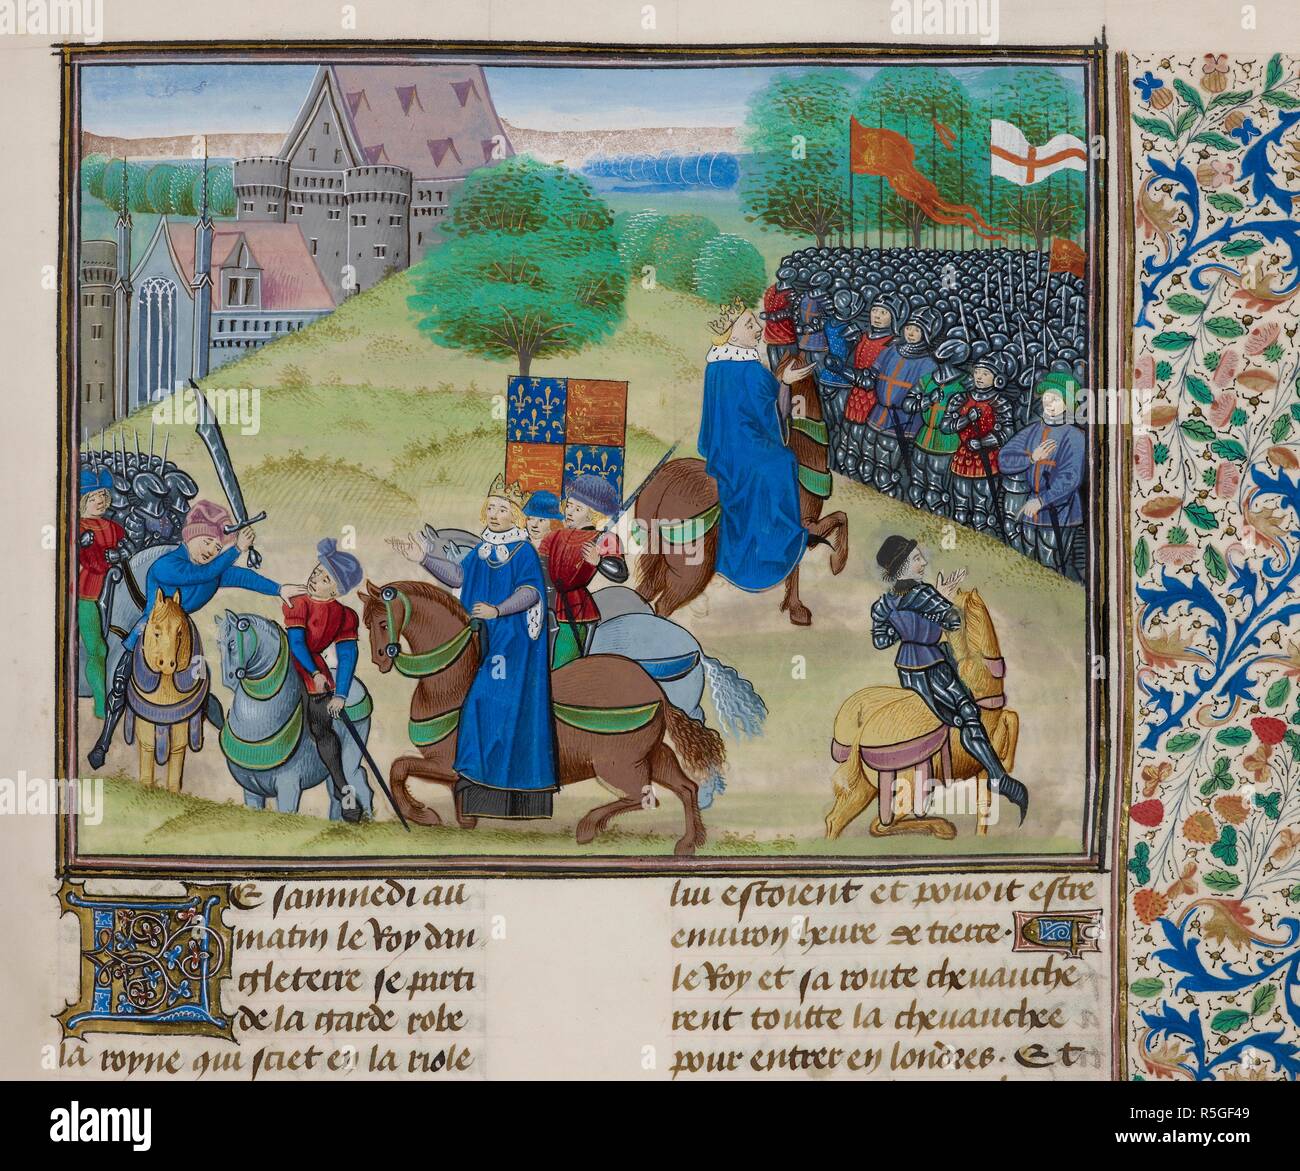 Le sammedi au
matin le Roy dan
gleterre se parti
de la garde robe
la royne qui sciet en la riole
lui estoient et pouoit estre
enuiron heure de tierce.
le Roy et sa route cheuauche
rent toutte la cheuauchee
pour entrer en londres. Et
alamy
Image ID: R5GF49
www.alamy.com